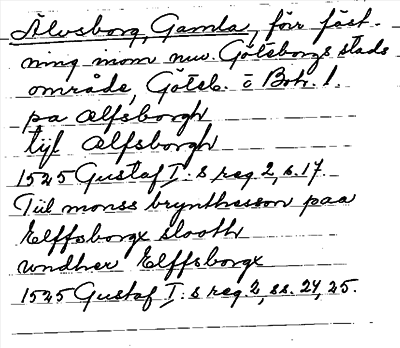 Älvsborg, Gamla, förr fäst-
ning inom nuv. Göteborgs stads
område, Göteb. o Boh. l.
pa ælfsborgh
tijl ælfsborgh
1525 Gustaf I:s reg. 2, s. 17.
Tiil monss brynthesson paa
Elffsborgx slooth
wndher Elffsborgx
1525 Gustaf I:s reg. 2, ss. 24, 25.